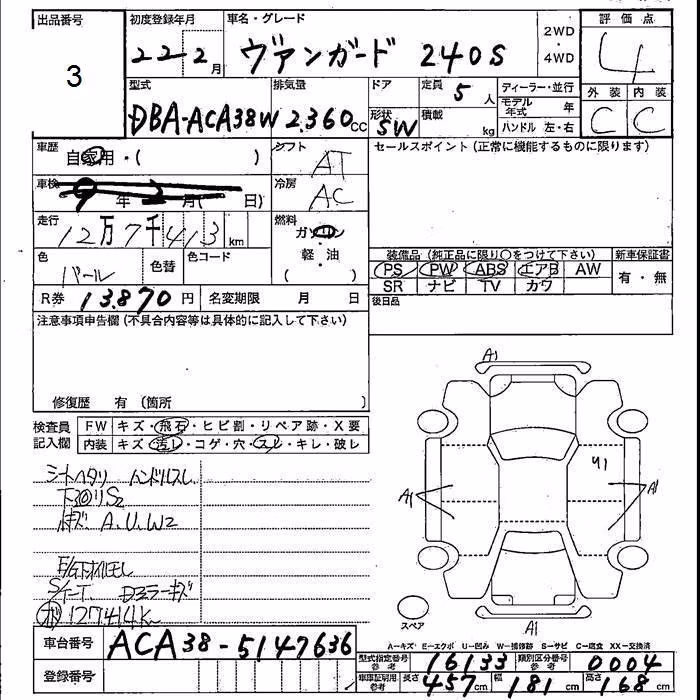 出品番号 初度登録年月 車名・グレード 評価点
3 22-2月 ヴァンガード 240S 2WD・4WD 4
型式 排気量 ドア 定員 ディーラー・並行 外装 内装
DBA-ACA38W 2.360cc 形状 SW 5人 積載 kg モデル年式 年 ハンドル 左・右 C C
車歴 シフト セールスポイント(正常に機能するものに限ります)
自家用・( ) AT
車検 冷房
年 月( 日) AC
走行 燃料
12万7千413km ガソリン
色 色替 色コード 軽・油 装備品(純正品に限り○をつけて下さい) 新車保証書
パール ( ) PS PW ABS エアB AW 有・無
R券 13.870円 名変期限 月 日 SR ナビ TV カワ
後日品
注意事項申告欄(不具合内容等は具体的に記入して下さい)
修復歴 有(箇所
検査員 FW キズ・飛石・ヒビ割・リペア跡・X要
記入欄 内装 キズ・汚レ・コゲ・穴・スレ・キレ・破レ
シートヘタリ ハンドルスレ
S2
キズ A.U.W2
キズ
127414K
A1
U1
A1 A1
A1
スペア
A-キズ E-エクボ U-凹み W-補修跡 S-サビ C-腐食 XX-交換済
車台番号 ACA38-5147636
型式指定番号 参考 16133 類別区分番号 参考 0004
登録番号
車庫証明用 参考 長さ 457cm 幅 181cm 高さ 168cm